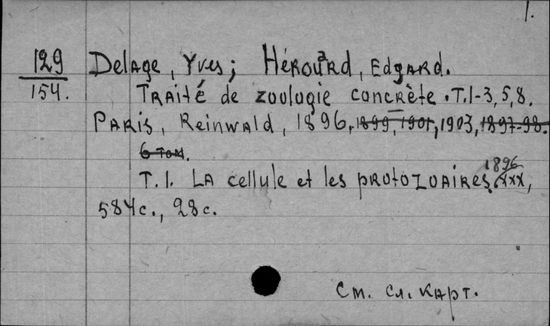 1.
129
154.
Delage, Yves; Hérouard, Edgard.
Traité de zoologie concrète. T.1-3,5,8.
Paris, Reinwald, 1896, 1899, 1901, 1903, 1897-98.
6 том.
T. 1. La cellule et les protozoaires. 1896 XXX,
584 с., 28 с.
См. сл. карт.